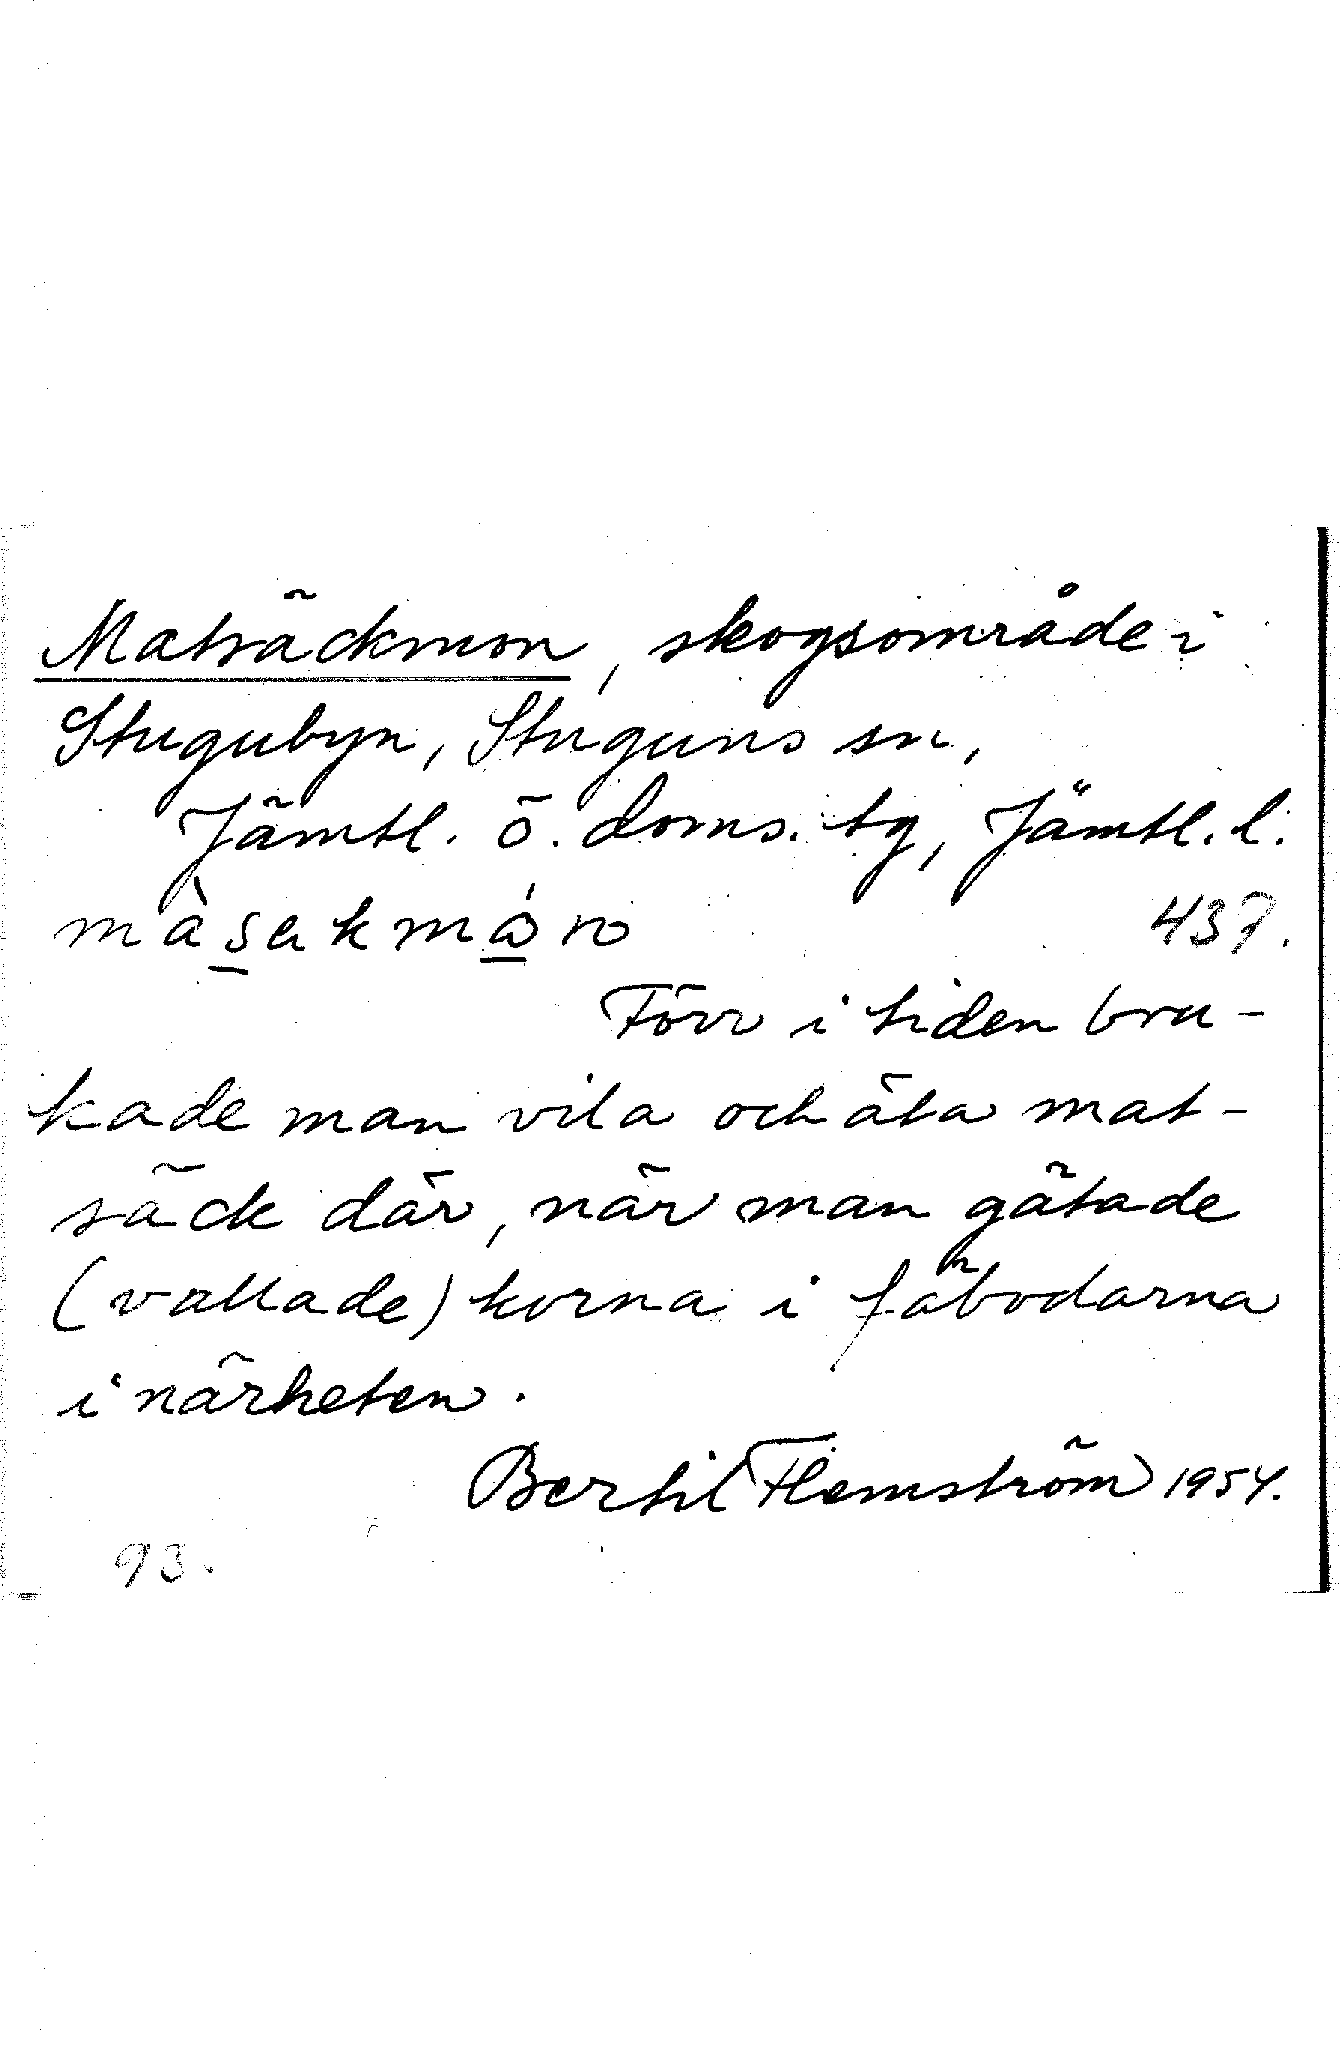 Matsäckmon, skogsområde i
Stugubyn, Stuguns sn,
Jämtl. ö. doms. tg, Jämtl. l.
437.
Förr i tiden bru-
kade man vila och äta mat-
säck där, när man gätade
(vallade) korna i fäbodarna
i närheten.
Bertil Flemström 1954.
93.